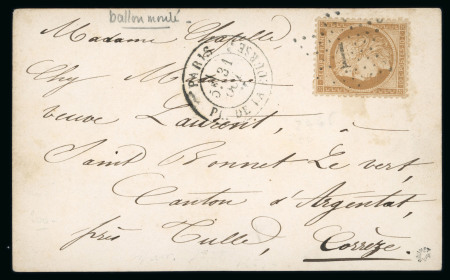 ballon monté.
Madame Chapelle,
Chez M
veuve Laurent,
Saint Bonnet Le vert,
Canton d'Argentat,
près Tulle, Corrèze.
PARIS
31
PL. DE LA BOURSE
1